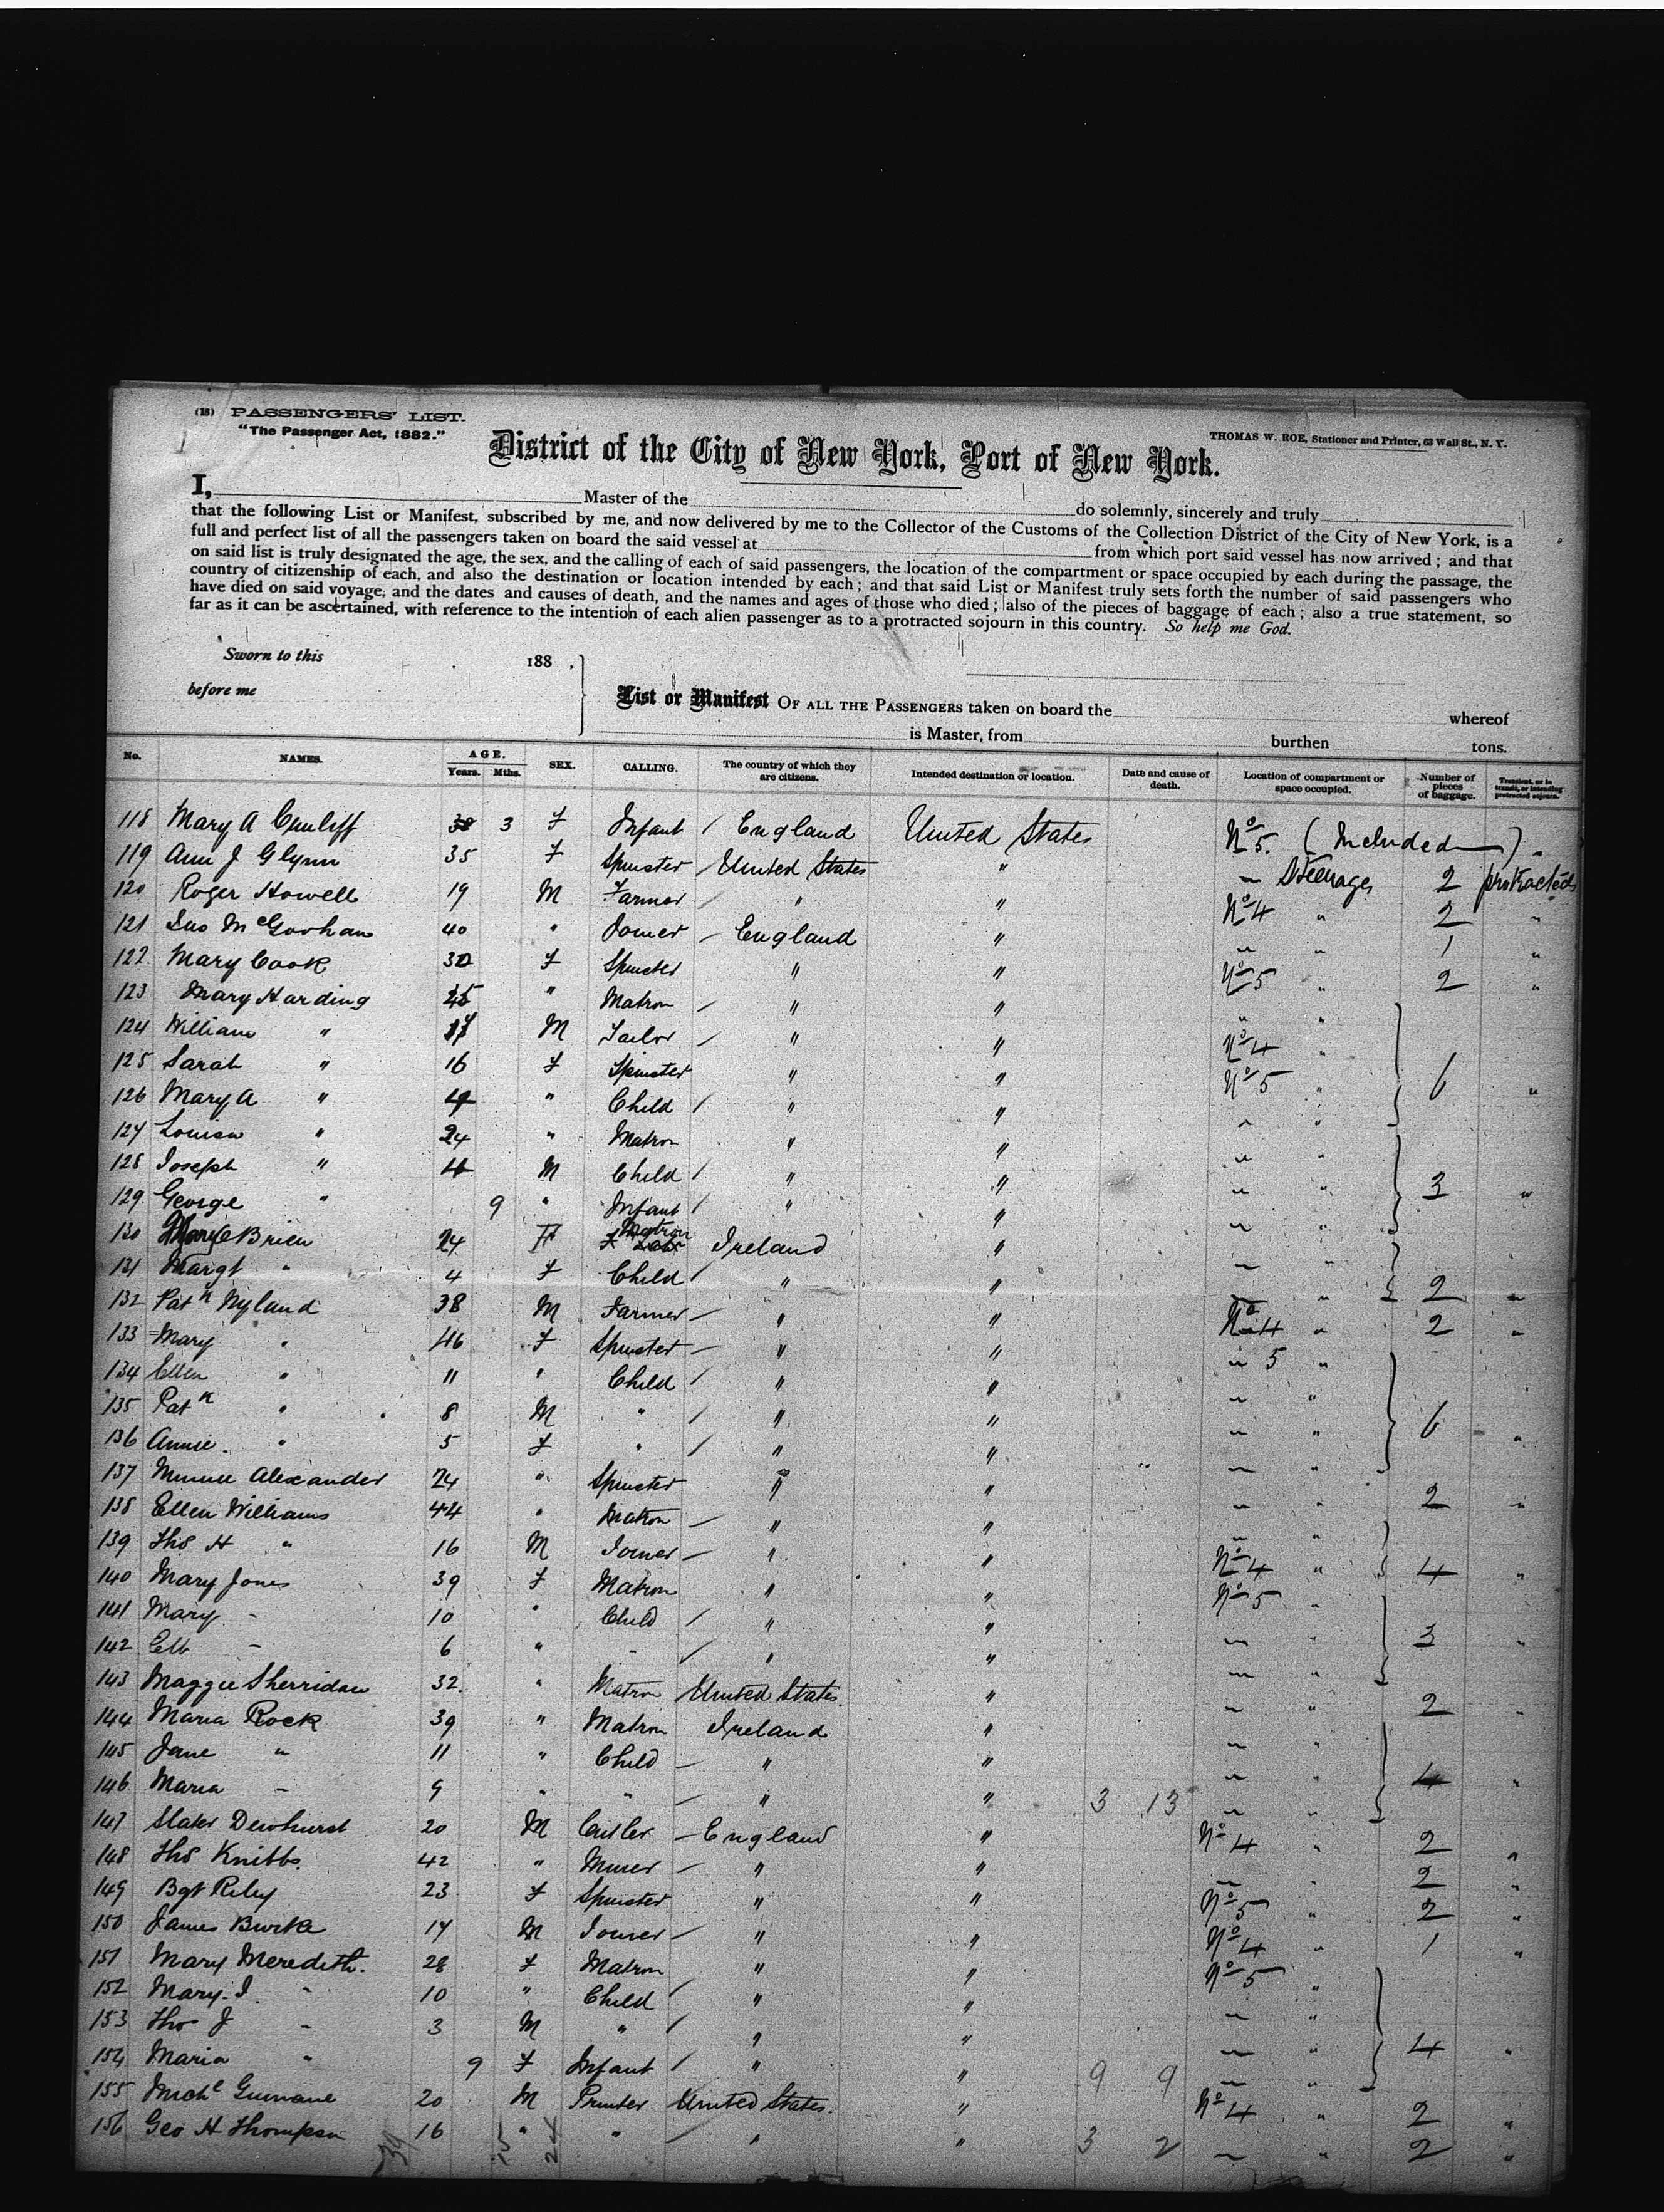 (18) PASSENGERS' LIST.
"The Passenger Act, 1882."
THOMAS W. ROE, Stationer and Printer, 63 Wall St., N. Y.
District of the City of New York, Port of New York.
I, Master of the do solemnly, sincerely and truly
that the following List or Manifest, subscribed by me, and now delivered by me to the Collector of the Customs of the Collection District of the City of New York, is a
full and perfect list of all the passengers taken on board the said vessel at from which port said vessel has now arrived; and that
on said list is truly designated the age, the sex, and the calling of each of said passengers, the location of the compartment or space occupied by each during the passage, the
country of citizenship of each, and also the destination or location intended by each; and that said List or Manifest truly sets forth the number of said passengers who
have died on said voyage, and the dates and causes of death, and the names and ages of those who died; also of the pieces of baggage of each; also a true statement, so
far as it can be ascertained, with reference to the intention of each alien passenger as to a protracted sojourn in this country. So help me God.
Sworn to this 188 .
before me
List or Manifest OF ALL THE PASSENGERS taken on board the whereof
is Master, from burthen tons.
No. NAMES. AGE. Years. Mths. SEX. CALLING. The country of which they are citizens. Intended destination or location. Date and cause of death. Location of compartment or space occupied. Number of pieces of baggage. Transient, or in transit, or intending protracted sojourn.
118 Mary A Cunliff 3 F Infant / England United States No 5. (Included) "
119 Ann J Glynn 35 F Spinster / United States " " Steerage 2 protracted
120 Roger Howell 19 M Farmer / " " No 4 " 2 "
121 Jno McGovhan 40 " Joiner – England " " " 1 "
122 Mary Cook 30 F Spinster " " No 5 " 2 "
123 Mary Harding 45 " Matron – " " " "
124 William " 17 M Tailor – " " No 4 "
125 Sarah " 16 F Spinster " " No 5 " 6 "
126 Mary A " 4 " Child / " " " "
127 Louisa " 24 " Matron " " " "
128 Joseph " 4 M Child / " " " " 3 "
129 George " 9 " Infant / " " " "
130 Mary O Brien 24 F Matron Ireland " " "
131 Margt " 4 F Child / " " " " 2 "
132 Patk Nyland 38 M Farmer – " " No 4 " 2 "
133 Mary " 46 F Spinster – " " " 5 "
134 Ellen " 11 " Child / " " " "
135 Patk " 8 M " / " " " " 6 "
136 Annie. " 5 F " / " " " "
137 Minnie Alexander 24 " Spinster " " " " 2 "
138 Ellen Williams 44 " Matron – " " " "
139 Thos H " 16 M Joiner – " " No 4 " 4 "
140 Mary Jones 39 F Matron " " No 5 "
141 Mary " 10 " Child / " " " " 3 "
142 " 6 " " / " " " "
143 Maggie Sherridan 32. " Matron United States. " " " 2 "
144 Maria Rock 39 " Matron Ireland " " "
145 Jane " 11 " Child – " " " " 4 "
146 Maria " 9 " " – " " 3 13 " "
147 Slater Dewhurst 20 M – England " No 4 " 2 "
148 Thos Knibbs. 42 " Miner – " " " " 2 "
149 Bgt Riley 23 F Spinster " " No 5 " 2 "
150 James Burke 17 M Joiner – " " No 4 " 1 "
151 Mary Meredith. 28 F Matron " " No 5 "
152 Mary. J. " 10 " Child / " " " "
153 Thos J " 3 M " / " " " " 4 "
154 Maria " 9 F Infant / " " 9 9 " "
155 Michl Guinane 20 M Printer United States. " No 4 " 2 "
156 Geo H Thompson 16 " " – " " 3 2 " " 2 "
39 15 24